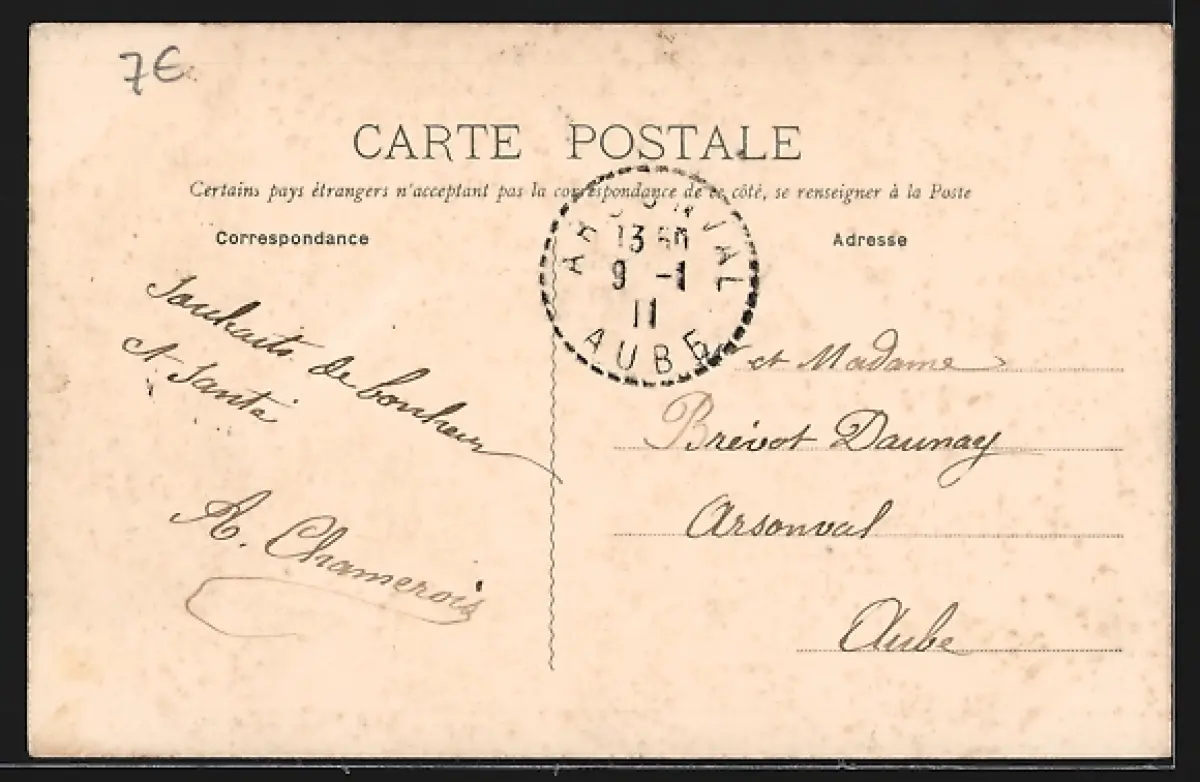 7€
CARTE POSTALE
Certains pays étrangers n'acceptant pas la correspondance de ce côté, se renseigner à la Poste
Correspondance
Adresse
ARSONVAL
13 50
9 -1
11
AUBE
Souhaits de bonheur
et Santé
A. Chamerois
et Madame
Brévot Daunay
Arsonval
Aube